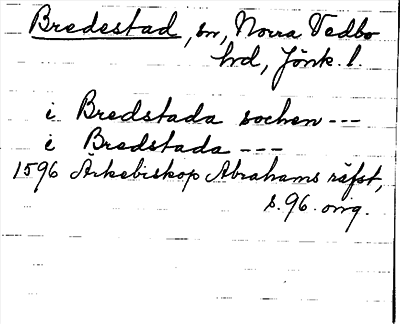 Bredestad, sn, Norra Vedbo
hd, Jönk. l.
i Bredstada sochen ---
i Bredstada ---
1596 Ärkebiskop Abrahams räfst,
s. 96. orig.